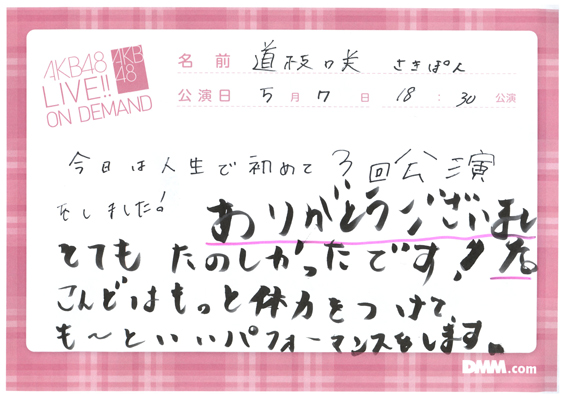 AKB48
LIVE!!
ON DEMAND
AKB
48
名前 道枝咲 さきぽん
公演日 5月7日 18:30 公演
今日は人生で初めて3回公演
をしました!
ありがとうございまし
とても たのしかったです! た
こんどはもっと体力をつけて、
も〜といいパフォーマンスをします。
DMM.com